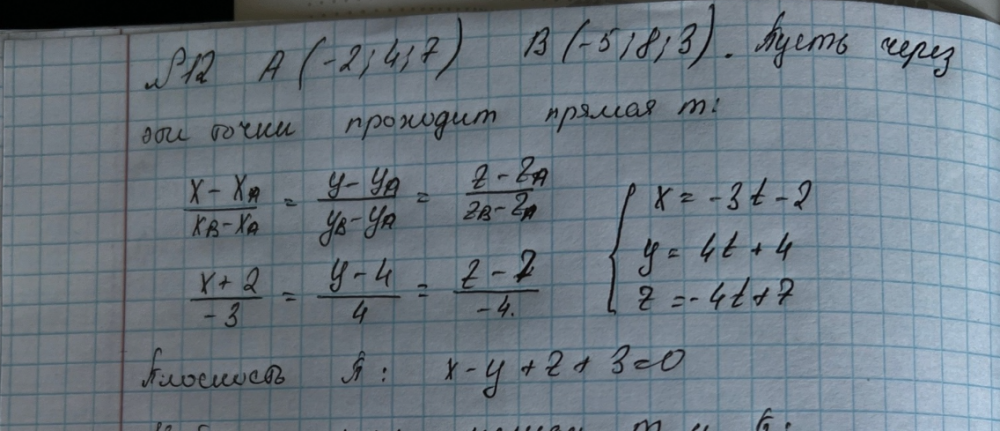 №12 A (-2; 4; 7) B (-5; 8; 3). Пусть через
эти точки проходит прямая m:
(x - x_A)/(x_B - x_A) = (y - y_A)/(y_B - y_A) = (z - z_A)/(z_B - z_A)
(x + 2)/(-3) = (y - 4)/4 = (z - 7)/(-4.)
{ x = -3t - 2
y = 4t + 4
z = -4t + 7
Плоскость π: x - y + z + 3 = 0